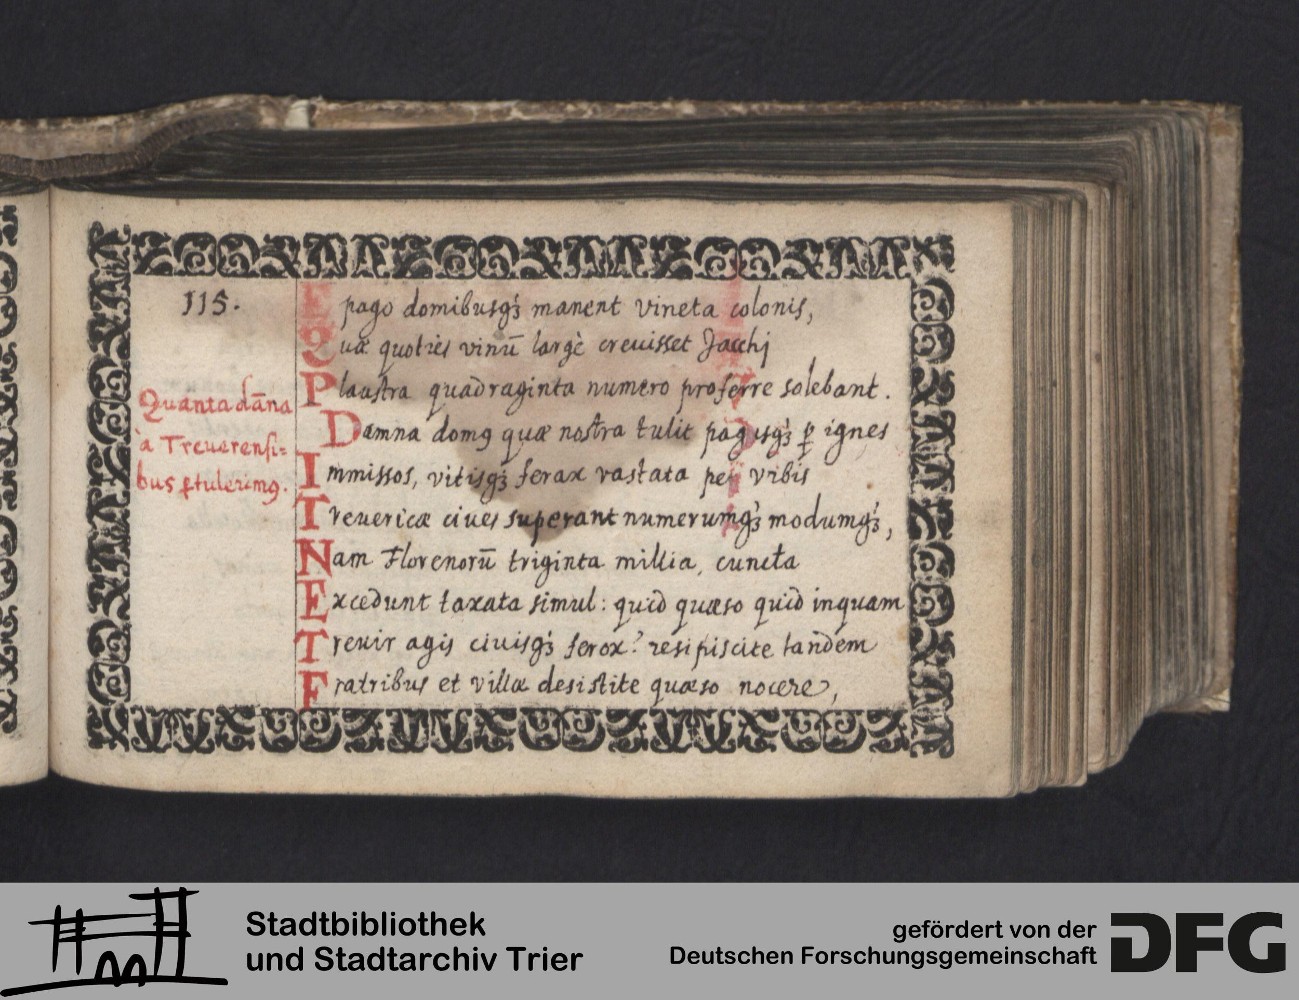 115.
E pago domibusqʒ manent vineta colonis,
Quæ quoties vinū largè creuisset Jacchi
Plaustra quadraginta numero proferre solebant.
Quanta dāna
à Treuerensi-
bus ꝑtulerimꝯ.
Damna domꝯ quæ nostra tulit pagusqʒ ꝑ ignes
Immissos, vitisqʒ ferax vastata per vrbis
Treuericæ ciues superant numerumqʒ modumqʒ,
Nam Florenorū triginta millia, cuncta
Excedunt taxata simul: quid quæso quid inquam
Treuir agis ciuisqʒ ferox? resipiscite tandem
Fratribus et villæ desistite quæso nocere,
Stadtbibliothek
und Stadtarchiv Trier
gefördert von der
Deutschen Forschungsgemeinschaft
DFG